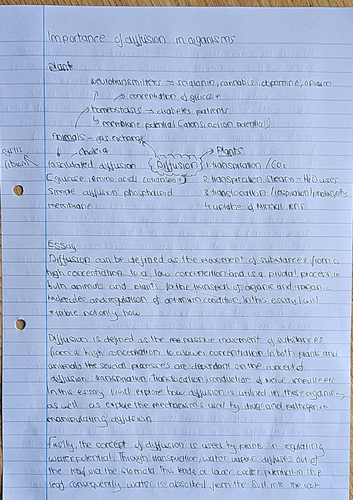 Importance of diffusion in organisms
Plants
neurotransmitters → cannabis, dopamine, opium
→ concentration of glucose
homeostasis → diabetes patients
↳ membrane potential (action potential)
Animals → gas exchange
→ cholera
cystic fibrosis
facilitated diffusion
(glucose, amino acids cotransport)
simple diffusion phospholipid
membrane
Diffusion
Plants
1 transpiration / CO2
2 transpiration stream → H2O uses
3 translocation / respiration/photosynthesis
4 uptake of mineral ions
Essay
Diffusion can be defined as the movement of substances from a
high concentration to a low concentration and is a pivotal process in
both animals and plants in the transport of organic and inorganic
molecules and regulation of optimum condition. In this essay I will
explore not only how
Diffusion is defined as the passive movement of substances
from a high concentration to a lower concentration. In both plants and
animals the several processes are dependant on the concept of
diffusion, transpiration, translocation, conduction of nerve impulses etc.
In this essay I will explore how diffusion is utilised in these organisms,
as well as explore the mechanisms used by drugs and pathogens in
manipulating diffusion.
Firstly, the concept of diffusion is used by plants in regulating
water potential. Through transpiration, water vapour diffuses out of
the leaf via the stomata. This leads a lower water potential in the
leaf, consequently water is absorbed from the soil into the root